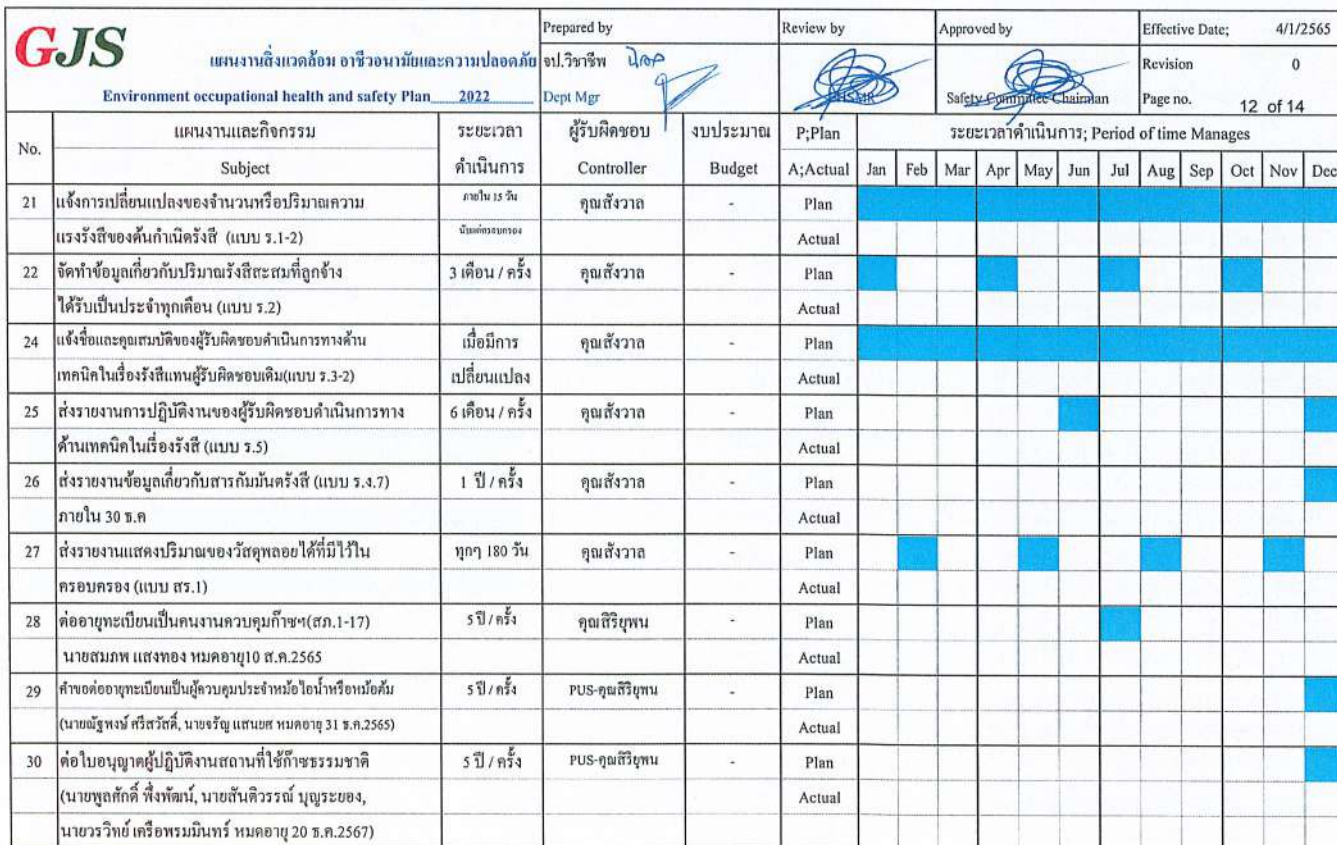 GJS
แผนงานสิ่งแวดล้อม อาชีวอนามัยและความปลอดภัย
Environment occupational health and safety Plan 2022
Prepared by
จป.วิชาชีพ
Dept Mgr
Review by
Approved by
Safety Committee Chairman
Effective Date; 4/1/2565
Revision 0
Page no. 12 of 14
No. แผนงานและกิจกรรม ระยะเวลา ผู้รับผิดชอบ งบประมาณ P;Plan ระยะเวลาดำเนินการ; Period of time Manages
Subject ดำเนินการ Controller Budget A;Actual Jan Feb Mar Apr May Jun Jul Aug Sep Oct Nov Dec
21 แจ้งการเปลี่ยนแปลงของจำนวนหรือปริมาณความ ภายใน 15 วัน คุณสังวาล - Plan
แรงรังสีของต้นกำเนิดรังสี (แบบ ร.1-2) นับแต่ครอบครอง Actual
22 จัดทำข้อมูลเกี่ยวกับปริมาณรังสีสะสมที่ลูกจ้าง 3 เดือน / ครั้ง คุณสังวาล - Plan
ได้รับเป็นประจำทุกเดือน (แบบ ร.2) Actual
24 แจ้งชื่อและคุณสมบัติของผู้รับผิดชอบดำเนินการทางด้าน เมื่อมีการ คุณสังวาล - Plan
เทคนิคในเรื่องรังสีแทนผู้รับผิดชอบเดิม(แบบ ร.3-2) เปลี่ยนแปลง Actual
25 ส่งรายงานการปฏิบัติงานของผู้รับผิดชอบดำเนินการทาง 6 เดือน / ครั้ง คุณสังวาล - Plan
ด้านเทคนิคในเรื่องรังสี (แบบ ร.5) Actual
26 ส่งรายงานข้อมูลเกี่ยวกับสารกัมมันตรังสี (แบบ ร.ง.7) 1 ปี / ครั้ง คุณสังวาล - Plan
ภายใน 30 ธ.ค Actual
27 ส่งรายงานแสดงปริมาณของวัสดุพลอยได้ที่มีไว้ใน ทุกๆ 180 วัน คุณสังวาล - Plan
ครอบครอง (แบบ สร.1) Actual
28 ต่ออายุทะเบียนเป็นคนงานควบคุมก๊าซฯ(สภ.1-17) 5 ปี / ครั้ง คุณสิริยุพน - Plan
นายสมภพ แสงทอง หมดอายุ10 ส.ค.2565 Actual
29 คำขอต่ออายุทะเบียนเป็นผู้ควบคุมประจำหม้อไอน้ำหรือหม้อต้ม 5 ปี / ครั้ง PUS-คุณสิริยุพน - Plan
(นายณัฐพงษ์ ศรีสวัสดิ์, นายจรัญ แสนยศ หมดอายุ 31 ธ.ค.2565) Actual
30 ต่อใบอนุญาตผู้ปฏิบัติงานสถานที่ใช้ก๊าซธรรมชาติ 5 ปี / ครั้ง PUS-คุณสิริยุพน - Plan
(นายพูลศักดิ์ พึ่งพัฒน์, นายสันติวรรณ์ บุญระยอง, Actual
นายวรวิทย์ เครือพรมมินทร์ หมดอายุ 20 ธ.ค.2567)